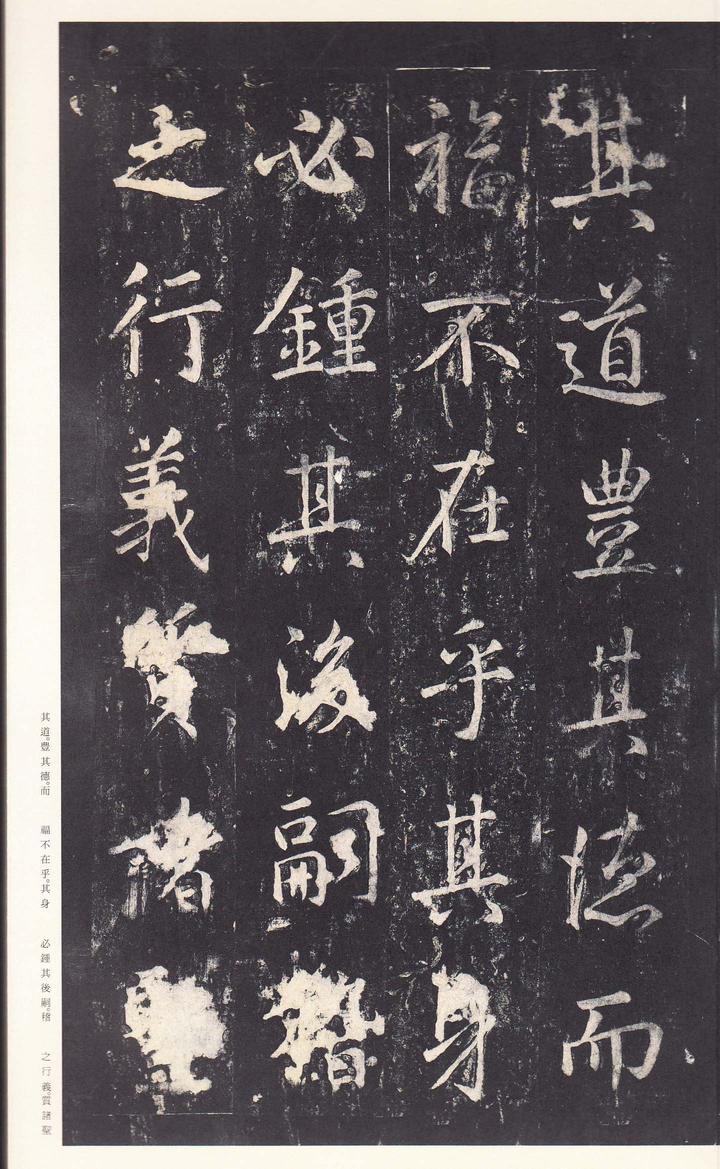 其道豊其德而
福不在乎其身
必鍾其後嗣稽
之行義質諸聖
其道。豊其德。而　福不在乎。其身　必鍾其後嗣。稽　之行義。質諸聖